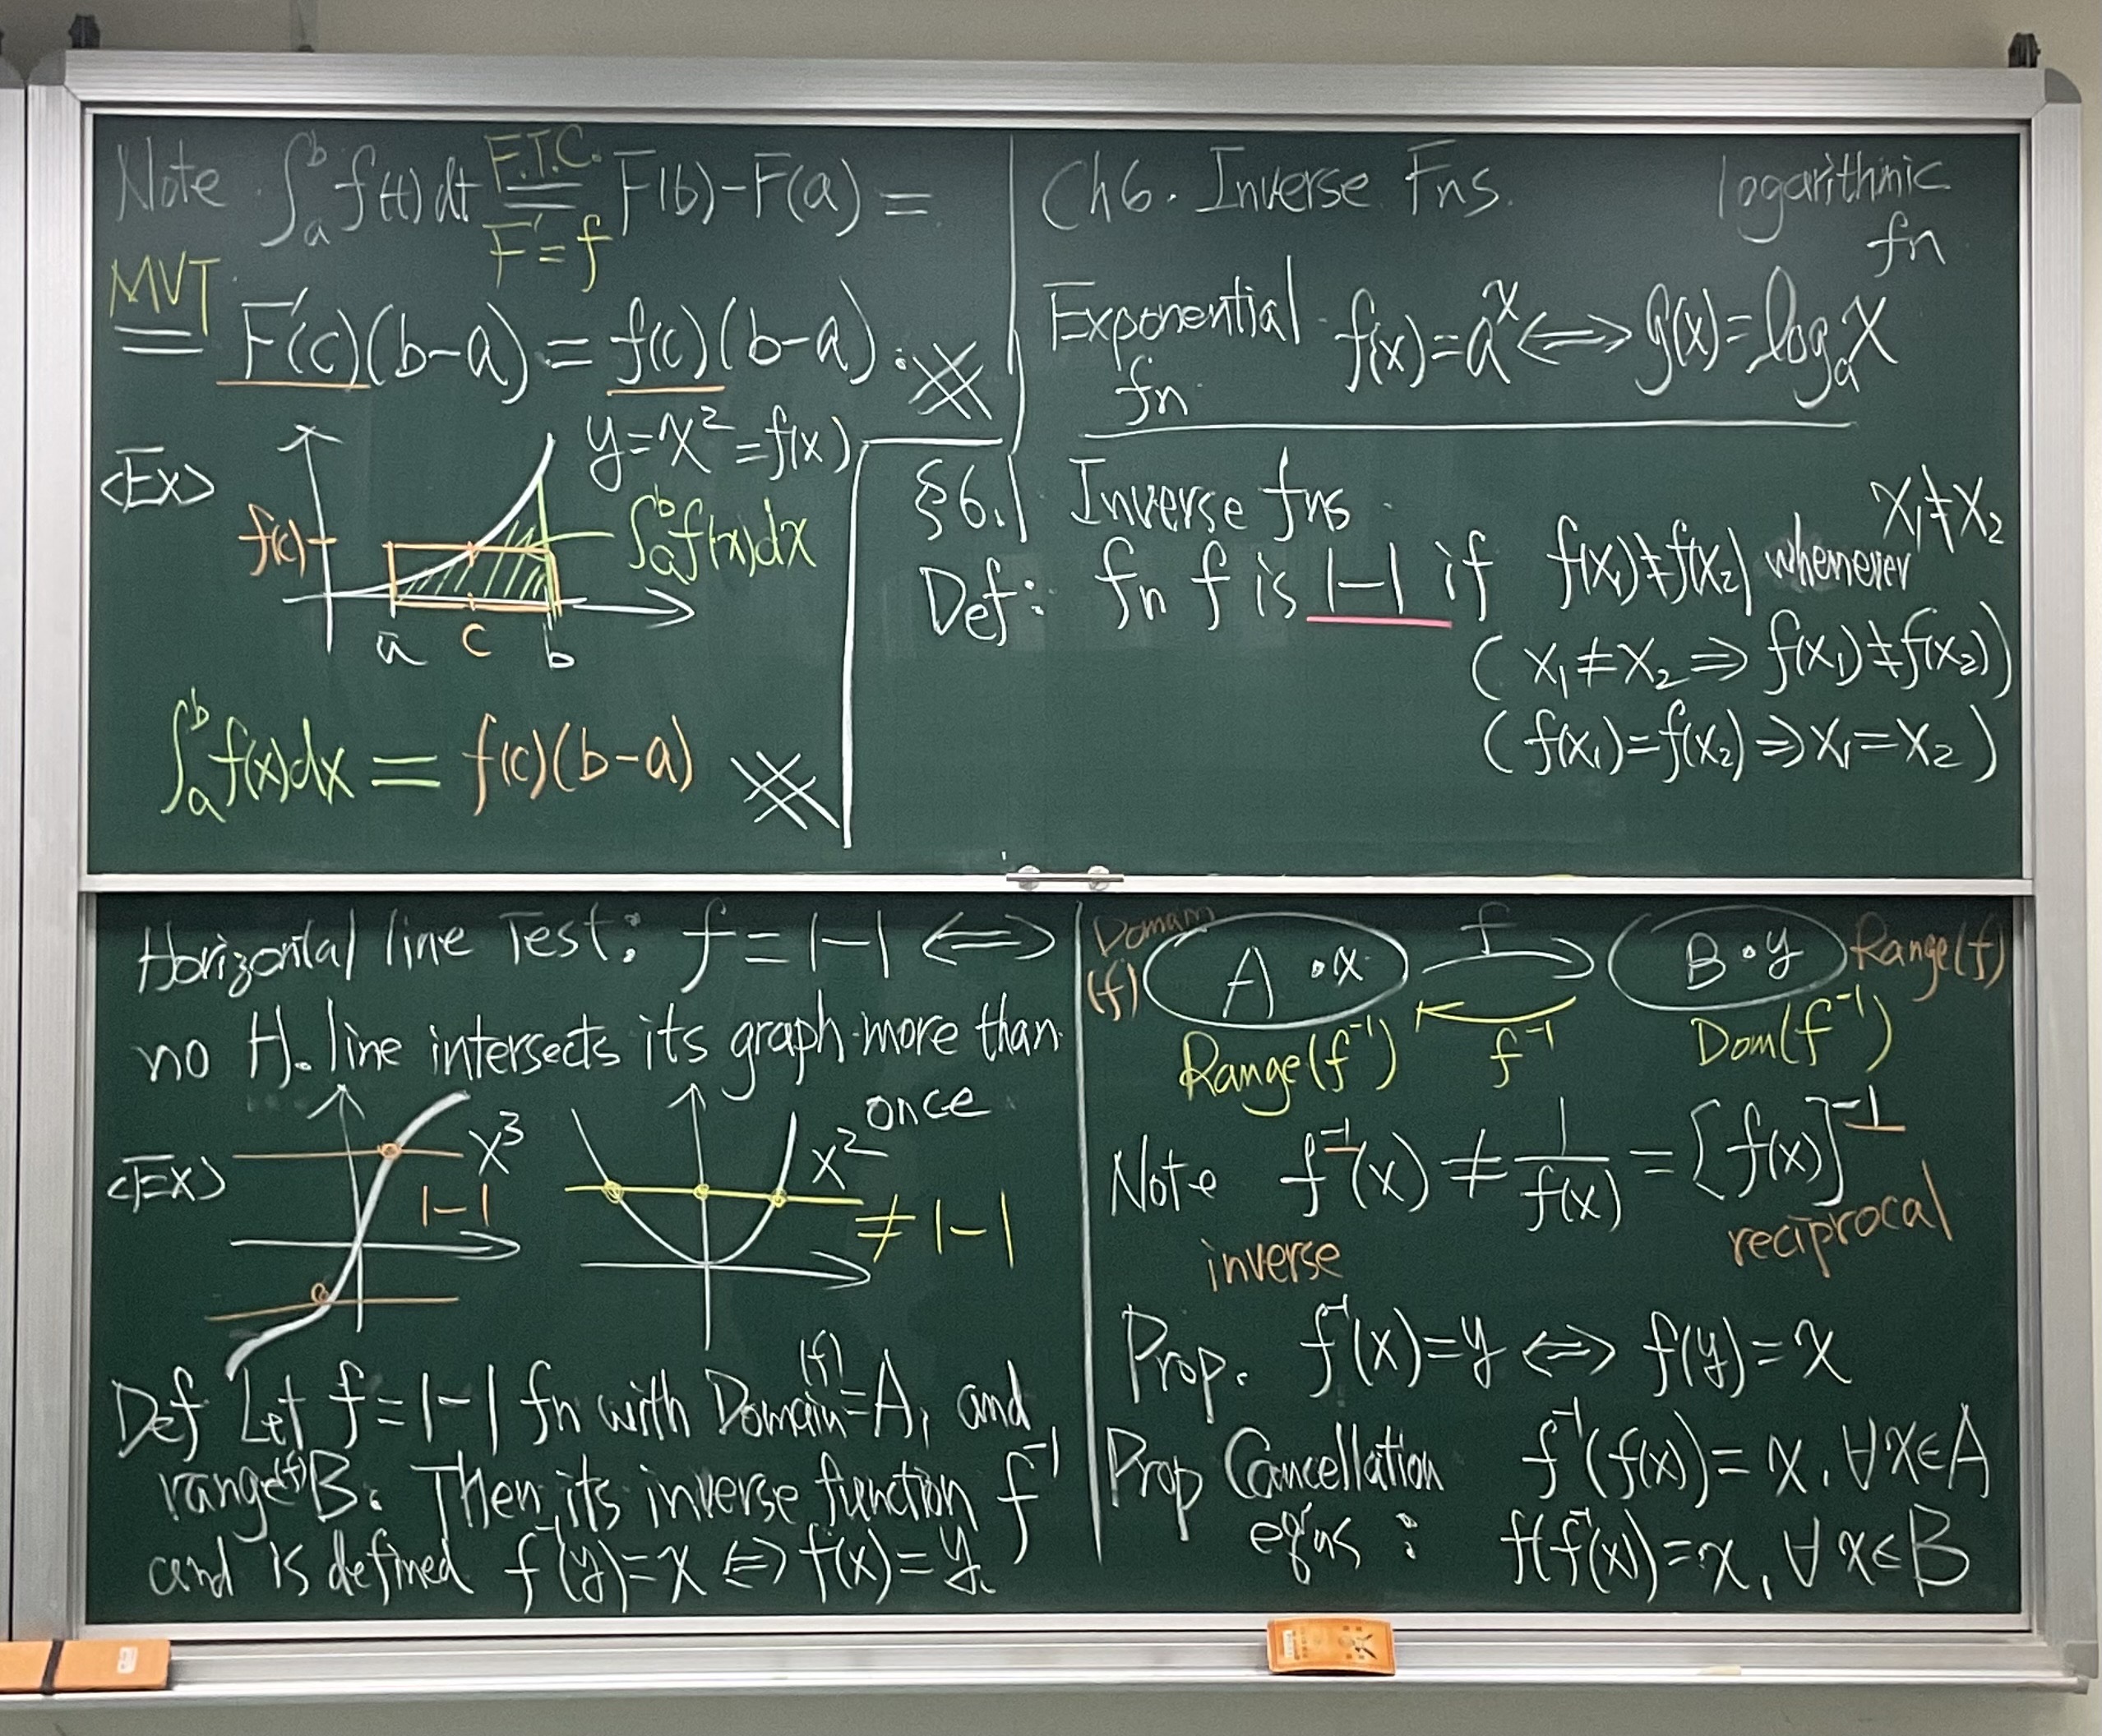 Note ∫_a^b f(t)dt =(F.T.C., F'=f) F(b)-F(a) =
MVT = F'(c)(b-a) = f(c)(b-a).
<Ex> y=x²=f(x)
f(c)
∫_a^b f(x)dx
a c b
∫_a^b f(x)dx = f(c)(b-a)
Ch6. Inverse Fns. logarithmic fn
Exponential fn f(x)=a^x ⟺ g(x)=log_a x
§6.1 Inverse fns.
Def: fn f is 1-1 if f(x₁)≠f(x₂) whenever x₁≠x₂
(x₁≠x₂ ⇒ f(x₁)≠f(x₂))
(f(x₁)=f(x₂) ⇒ x₁=x₂)
Horizontal line Test: f=1-1 ⟺
no H. line intersects its graph more than
once
<Ex> x³ 1-1 x² ≠1-1
Def Let f=1-1 fn with Domain(f)=A, and
range(f)B. Then its inverse function f⁻¹
and is defined f⁻¹(y)=x ⟺ f(x)=y.
Domain (f) A ·x f B·y Range(f)
Range(f⁻¹) f⁻¹ Dom(f⁻¹)
Note f⁻¹(x) ≠ 1/f(x) = [f(x)]⁻¹
inverse reciprocal
Prop. f⁻¹(x)=y ⟺ f(y)=x
Prop Cancellation f⁻¹(f(x))=x, ∀x∈A
eqns: f(f⁻¹(x))=x, ∀x∈B